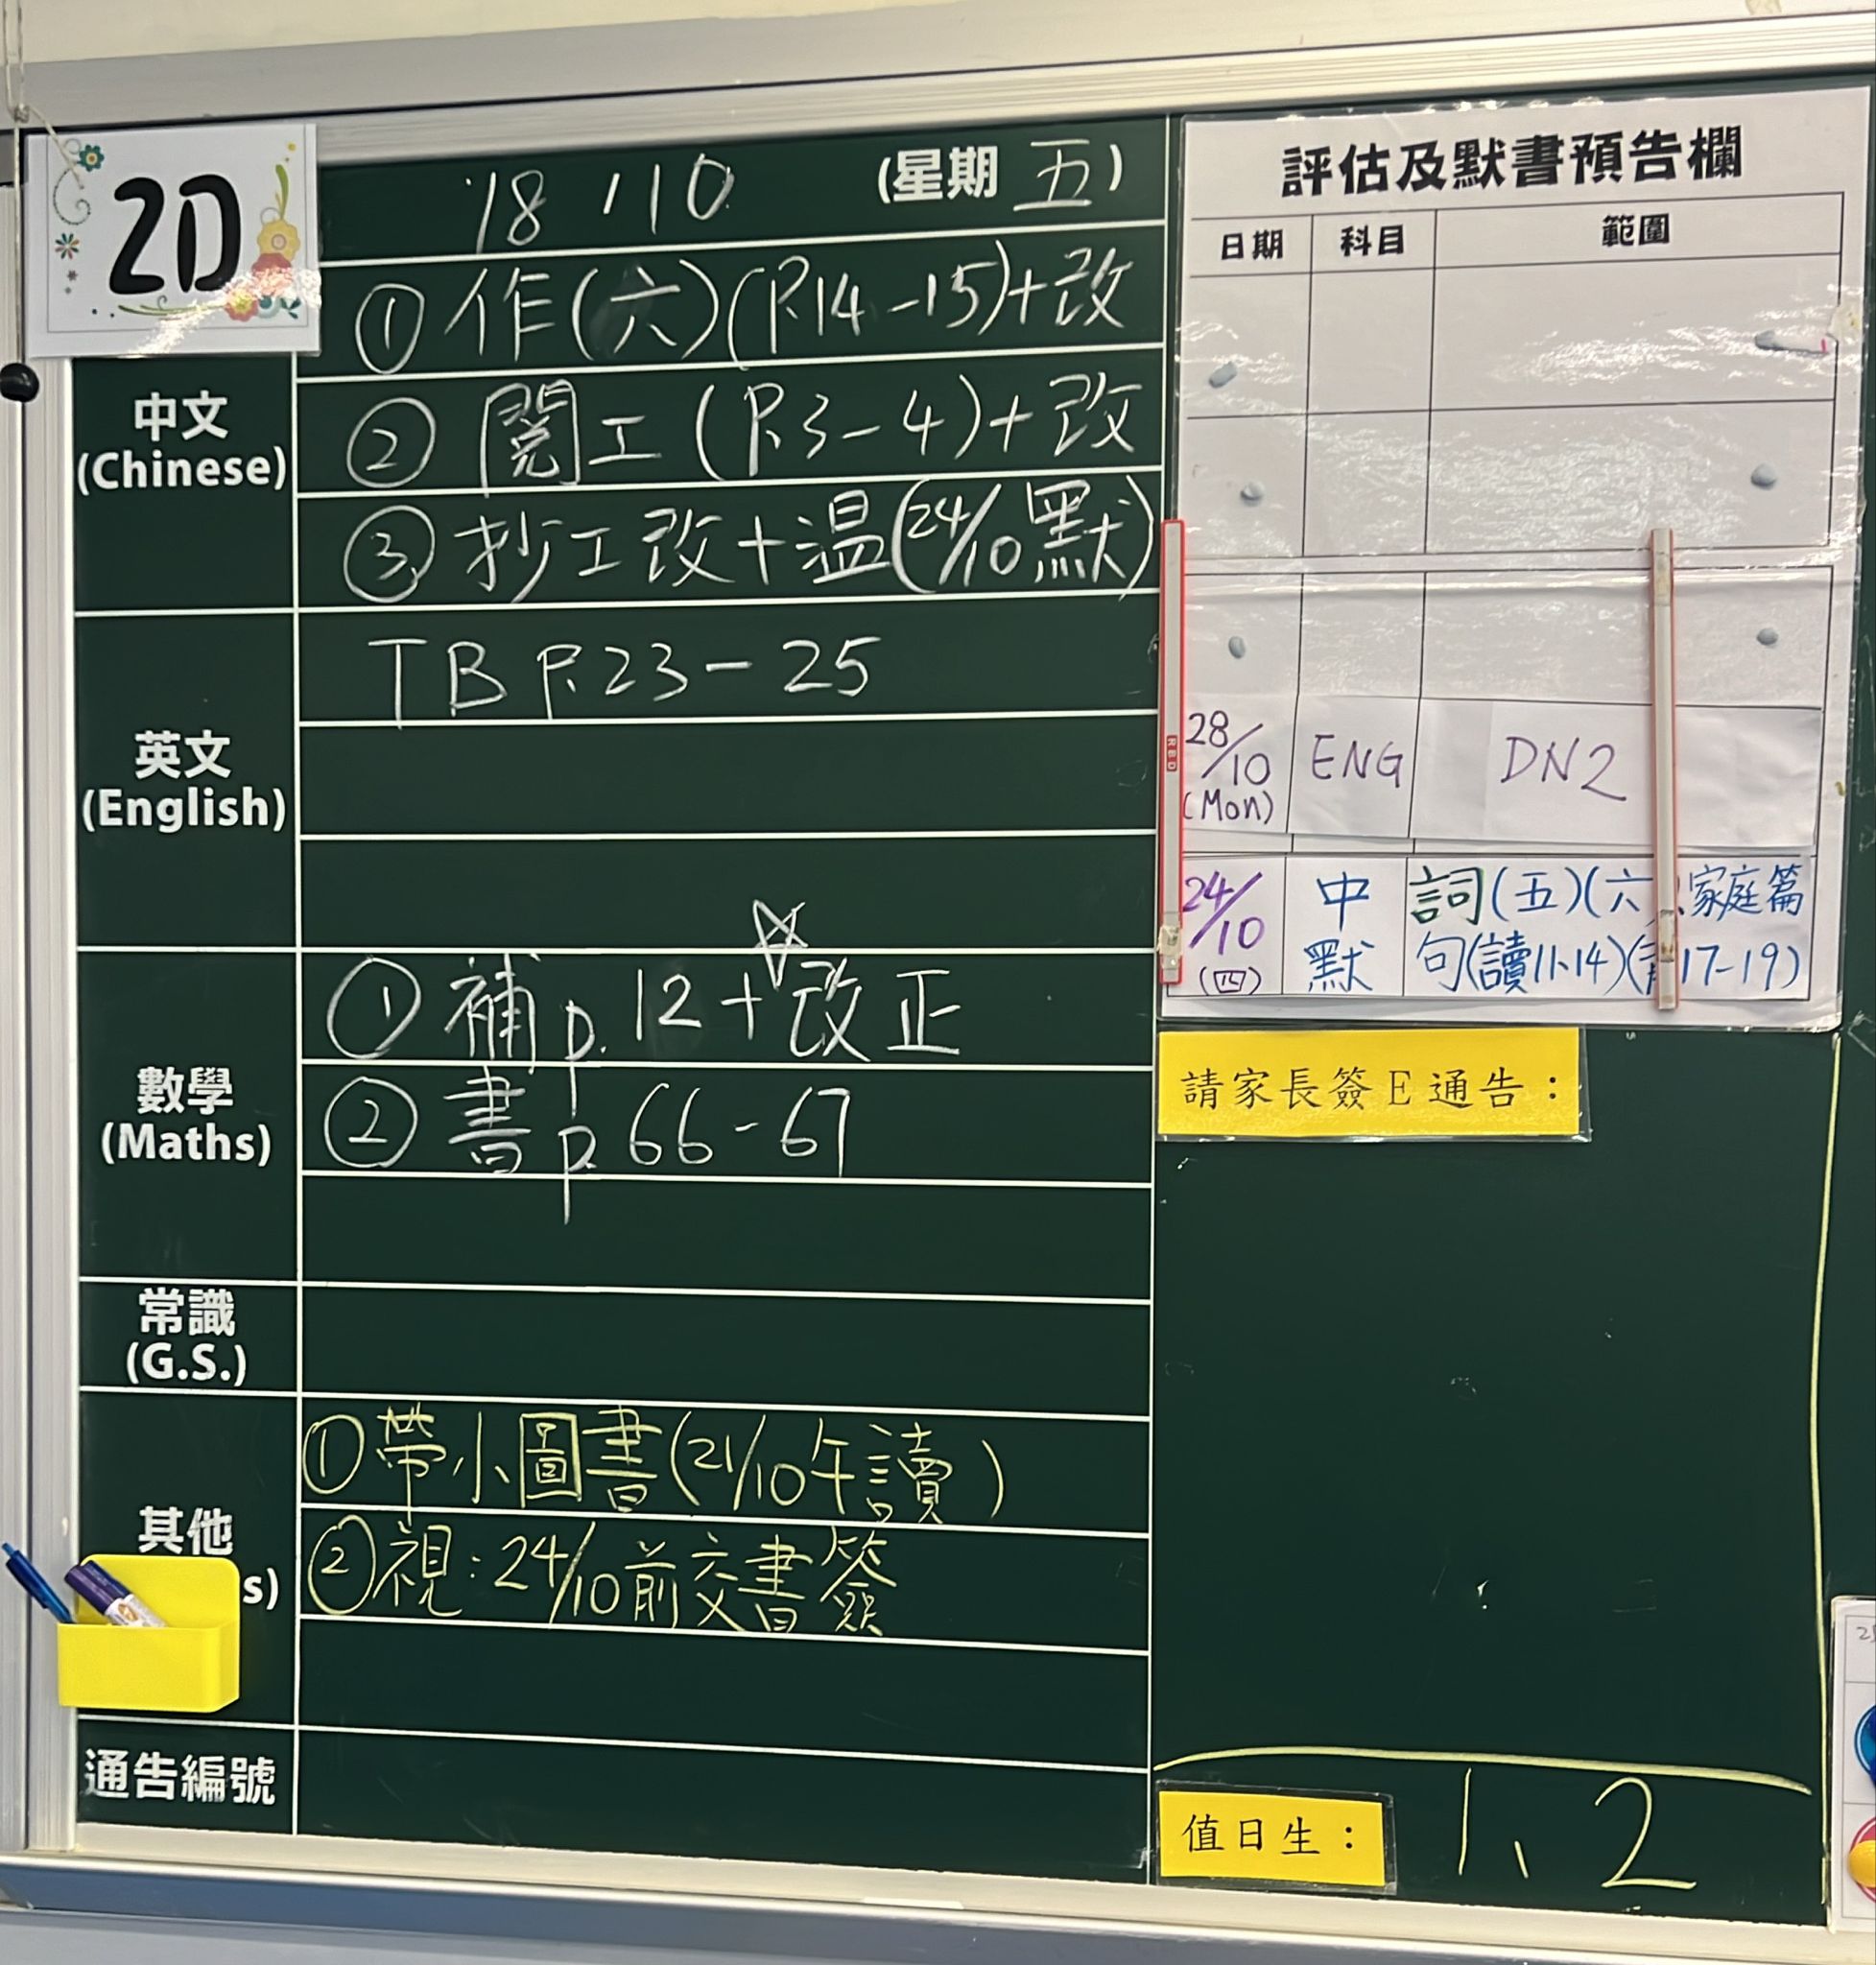 2D
18 / 10 (星期 五)
中文
(Chinese)
① 作(六)(P.14-15)+改
② 閱工(P.3-4)+改
③ 抄工改+温(24/10默)
英文
(English)
TB P.23-25
數學
(Maths)
① 補 p. 12+改正
② 書 p. 66-67
常識
(G.S.)
其他
s)
① 帶小圖書(21/10午讀)
② 視:24/10前交書簽
通告編號
評估及默書預告欄
日期 科目 範圍
28/10 ENG DN2
(Mon)
24/10 中 詞(五)(六 家庭篇
(四) 默 句(讀11、14)( 17-19)
請家長簽E通告:
值日生: 1、2